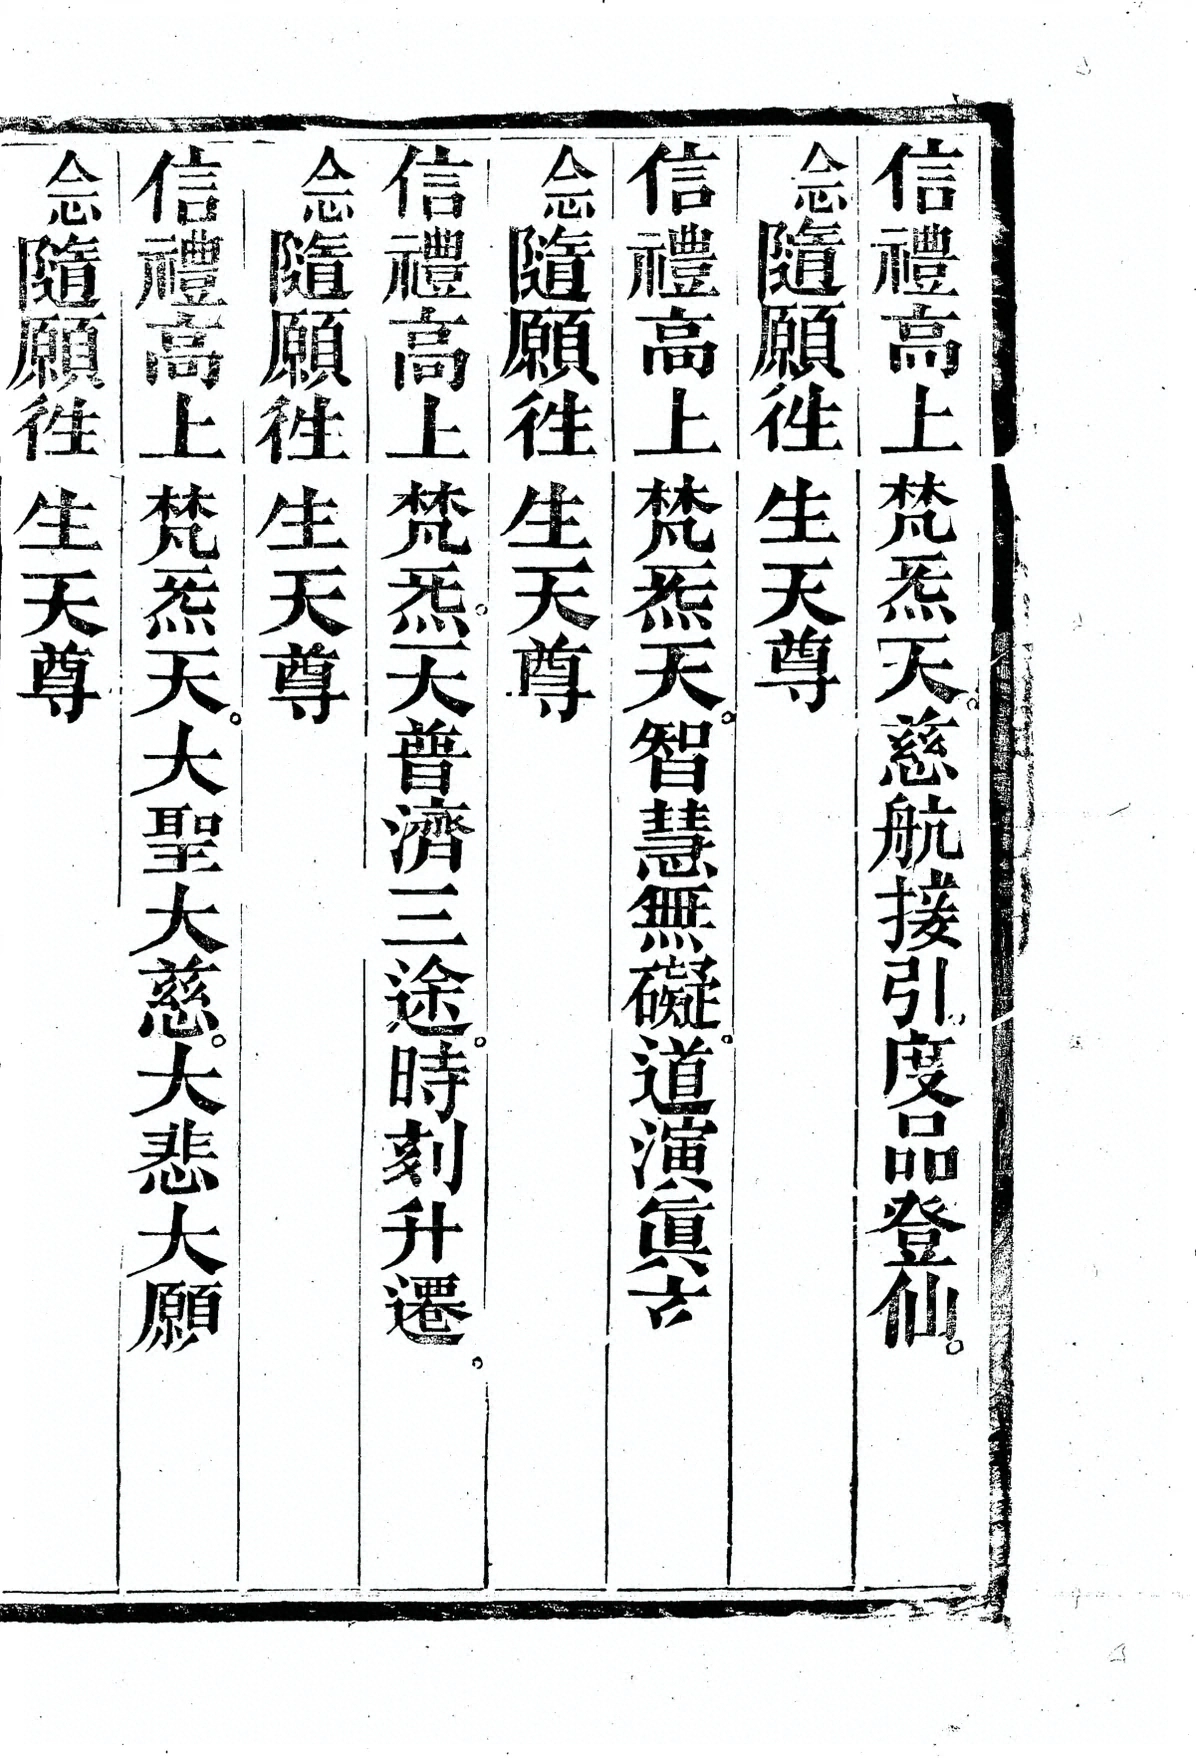 信禮高上梵炁天。慈航接引。度品登仙。
念隨願徃生天尊
信禮高上梵炁天。智慧無礙。道演眞
念隨願徃生天尊
信禮高上梵炁。天普濟三途。時刻升遷。
念隨願徃生天尊
信禮高上梵炁天。大聖大慈。大悲大願
念隨願徃生天尊